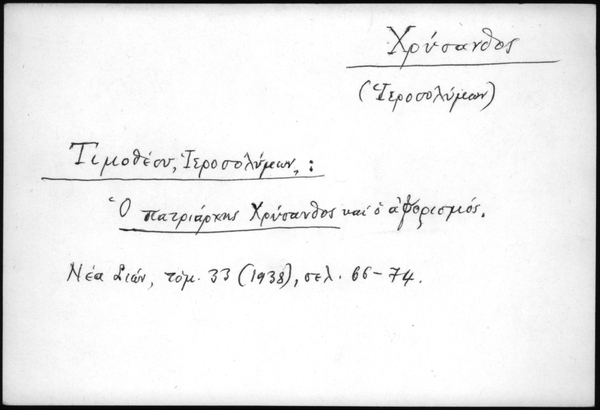 Χρύσανθος
(Ἱεροσολύμων)
Τιμοθέου, Ἱεροσολύμων, :
Ὁ πατριάρχης Χρύσανθος καὶ ὁ ἀφορισμός.
Νέα Σιών, τόμ. 33 (1938), σελ. 66-74.